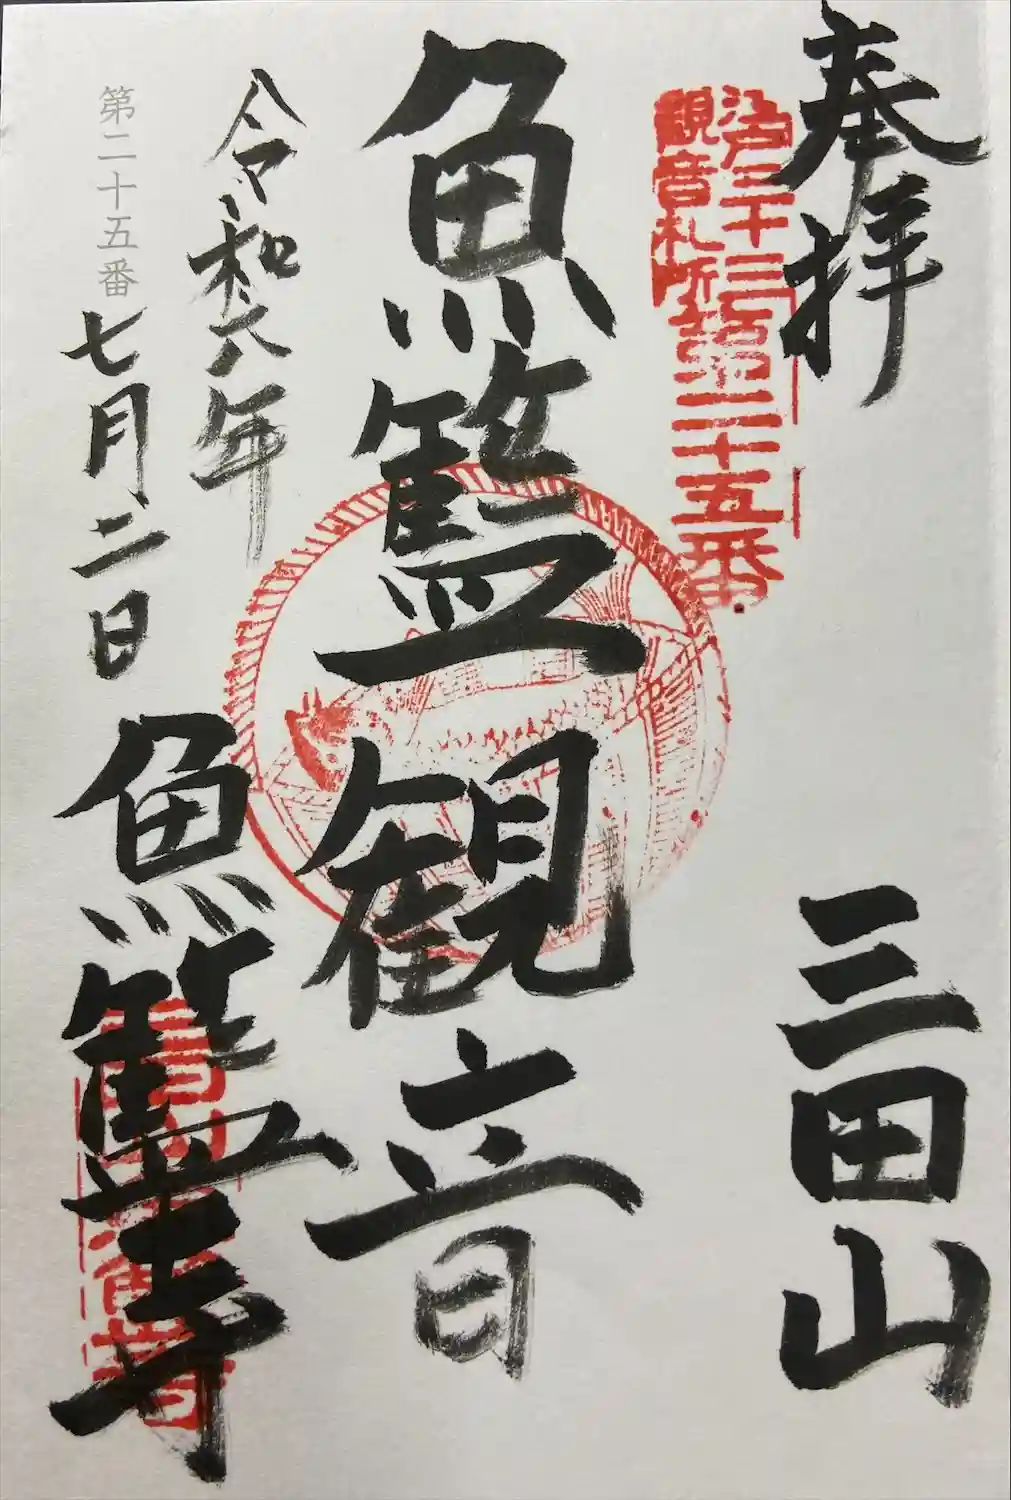 奉拝
三田山
江戸三十三
観音札所
第二十五番
魚籃観音
令和六年
七月二日
魚籃寺
第二十五番